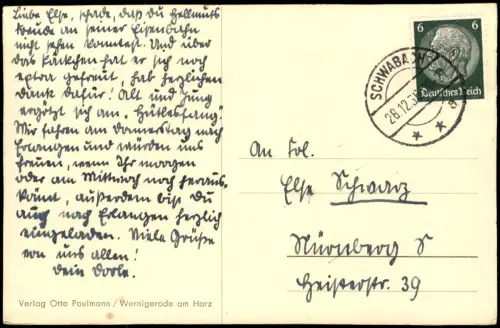 Liebe Else, schade, daß du Hellmuts
Freude an seiner Eisenbahn
nicht sehen konntest. Und über
das Päckchen hat er sich noch
extra gefreut, hab herzlichen
Dank dafür! Alt und Jung
ergötzt sich am "Hütlesfang"
Wir fahren am Donnerstag nach
Erlangen und würden uns
freuen, wenn Ihr morgen
oder am Mittwoch noch heraus-
kämt, außerdem bist Du
auch nach Erlangen herzlich
eingeladen. Viele Grüße
von uns allen!
Dein Dorle.
Verlag Otto Paulmann / Wernigerode am Harz
6 6
Deutsches Reich
SCHWABACH
28.12.3
An Frl.
Else Schwarz
Nürnberg S
Heisterstr. 39